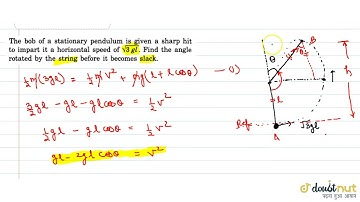 The bob of a stationary pendulum is given a sharp hit
to impart it a horizontal speed of √3 gl. Find the angle
rotated by the string before it becomes slack.
½ m(3gl) = ½ m v² + mg(l + l cosθ) —①
3/2 gl - gl - gl cosθ = ½ v²
½ gl - gl cosθ = ½ v²
gl - 2gl cosθ = v²
B
θ
h
l
Ref
A
√3gl
doubtnut